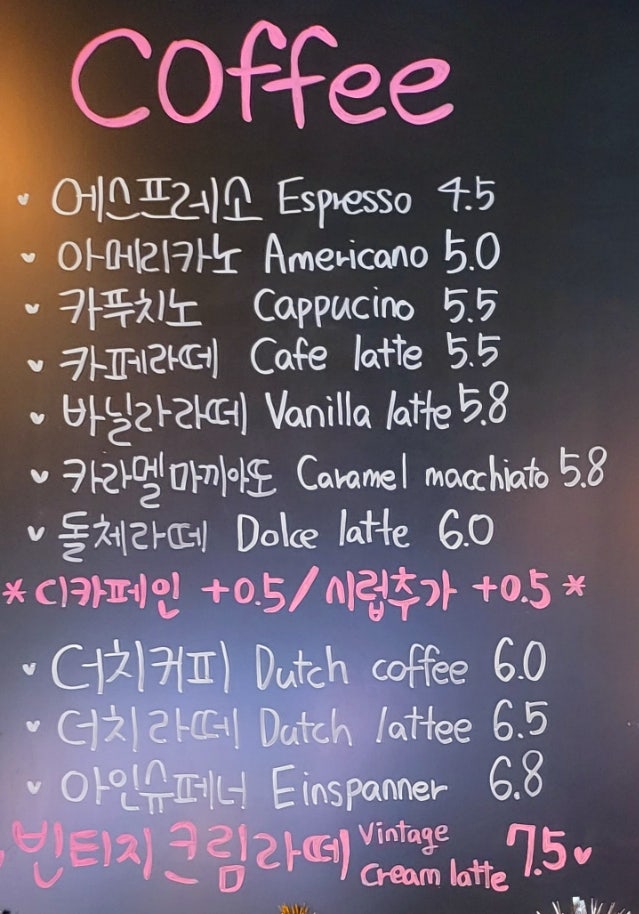 Coffee
에스프레소 Espresso 4.5
아메리카노 Americano 5.0
카푸치노 Cappucino 5.5
카페라떼 Cafe latte 5.5
바닐라라떼 Vanilla latte 5.8
카라멜마끼아또 Caramel macchiato 5.8
돌체라떼 Dolce latte 6.0
*디카페인 +0.5/시럽추가 +0.5*
더치커피 Dutch coffee 6.0
더치라떼 Dutch lattee 6.5
아인슈페너 Einspanner 6.8
빈티지크림라떼 Vintage Cream latte 7.5